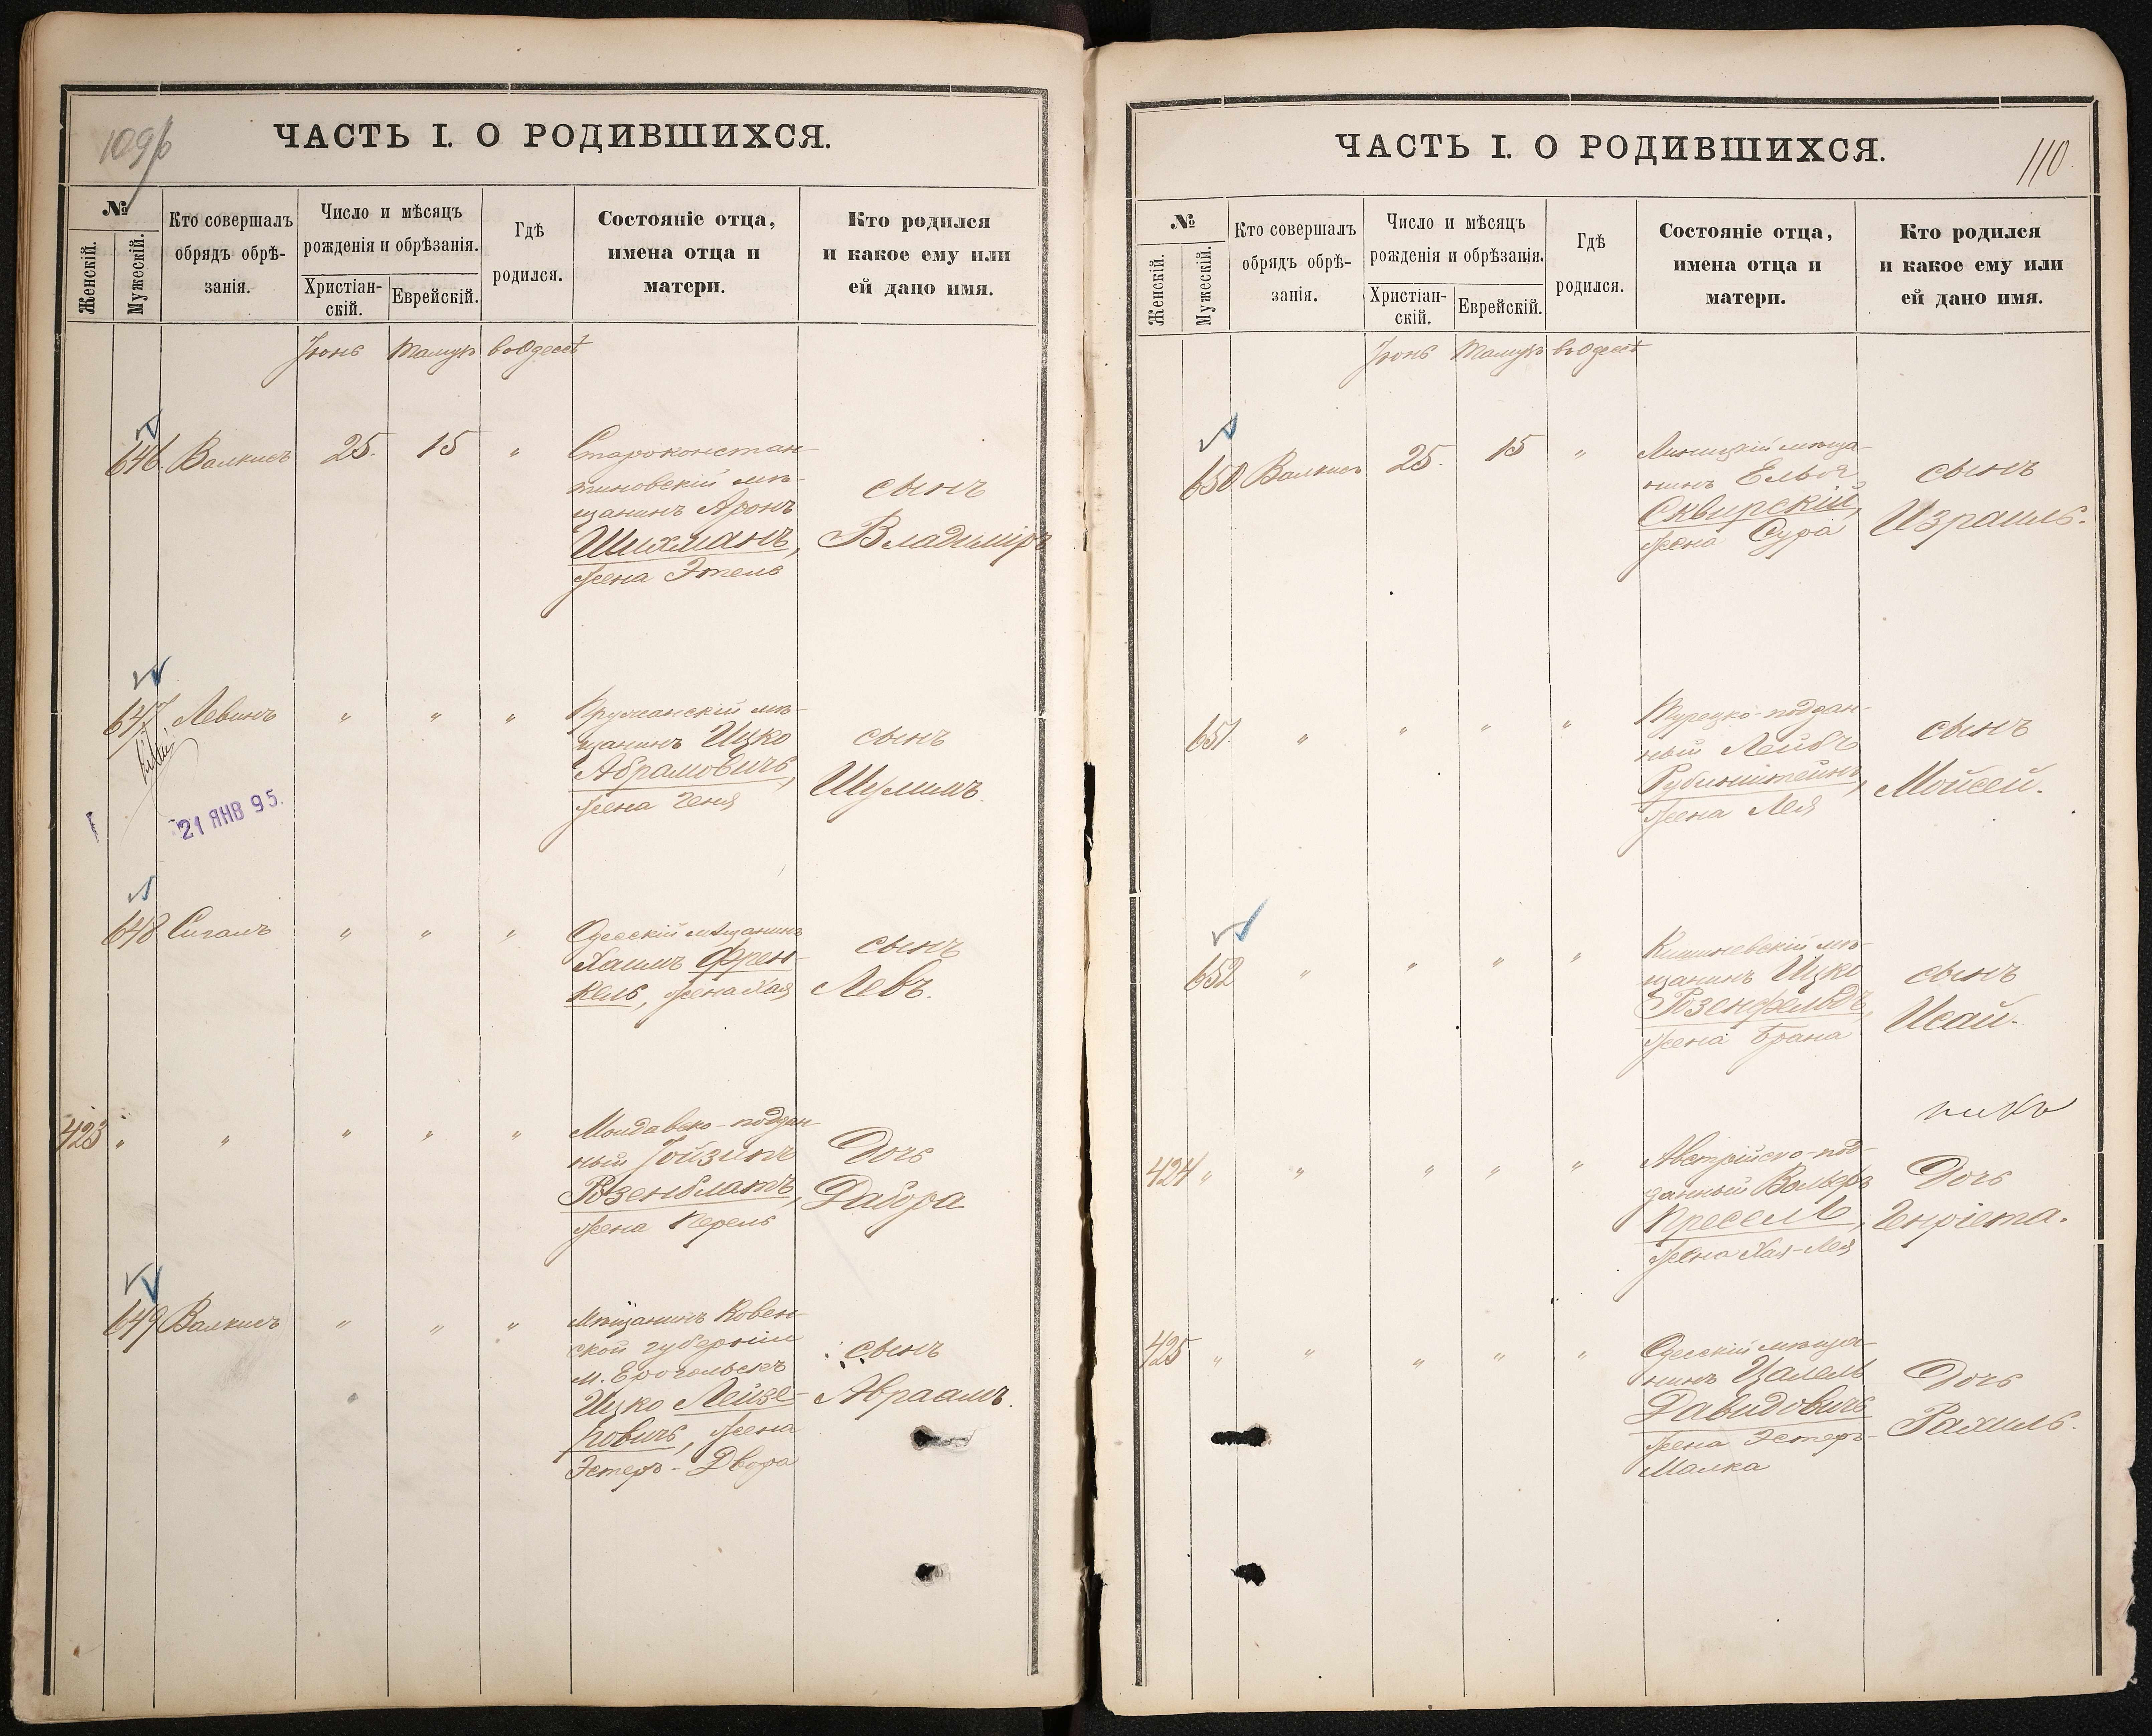 109
ЧАСТЬ I. О РОДИВШИХСЯ.
№
Женскій.
Мужескій.
Кто совершалъ
обрядъ обрѣ-
занія.
Число и мѣсяцъ
рожденія и обрѣзанія.
Христіан-
скій.
Еврейскій.
Гдѣ
родился.
Состояніе отца,
имена отца и
матери.
Кто родился
и какое ему или
ей дано имя.
Іюнь Тамузъ въ Одессѣ
646. Валкисъ 25. 15 "
Староконстан-
тиновскій мѣ-
щанинъ Аронъ
Шихманъ,
жена Этель
сынъ
Владиміръ
647 Левинъ " " "
Пружанскій мѣ-
щанинъ Ицко
Абрамовичъ,
жена Геня
сынъ
Шулимъ
21 ЯНВ 95.
648 Сигалъ " " "
Одесскій мѣщанинъ
Хаимъ Френ-
кель, жена Хая
сынъ
Левъ.
423 " " " " "
Молдавско-поддан-
ный Іойзипъ
Розенблатъ,
жена Перель
Дочь
Двойра
649 Валкисъ " " "
Мѣщанинъ Ковен-
ской губерніи
м.
Ицко Лейзе-
ровичъ, жена
Эстеръ-Двора
сынъ
Авраамъ.
ЧАСТЬ I. О РОДИВШИХСЯ.
110
№
Женскій.
Мужескій.
Кто совершалъ
обрядъ обрѣ-
занія.
Число и мѣсяцъ
рожденія и обрѣзанія.
Христіан-
скій.
Еврейскій.
Гдѣ
родился.
Состояніе отца,
имена отца и
матери.
Кто родился
и какое ему или
ей дано имя.
Іюнь Тамузъ въ Одессѣ
650 Валкисъ 25. 15 "
мѣща-
нинъ Елья
Сквирскій,
жена Сура
сынъ
Израиль.
651. " " " "
Турецко-поддан-
ный Лейбъ
Рубинштейнъ,
жена Лея
сынъ
Мойсей.
652 " " " "
Кишиневскій мѣ-
щанинъ Ицко
Розенфельдъ,
жена Брана
сынъ
Исай.
424 " " " " "
Австрійско-под-
данный Вольфъ
Пресель,
жена Хая-Лея
Дочь
Генріета.
425 " " " " "
Одесскій мѣща-
нинъ Цалель
Давидовичъ
жена Эстеръ-
Малка
Дочь
Рахиль.